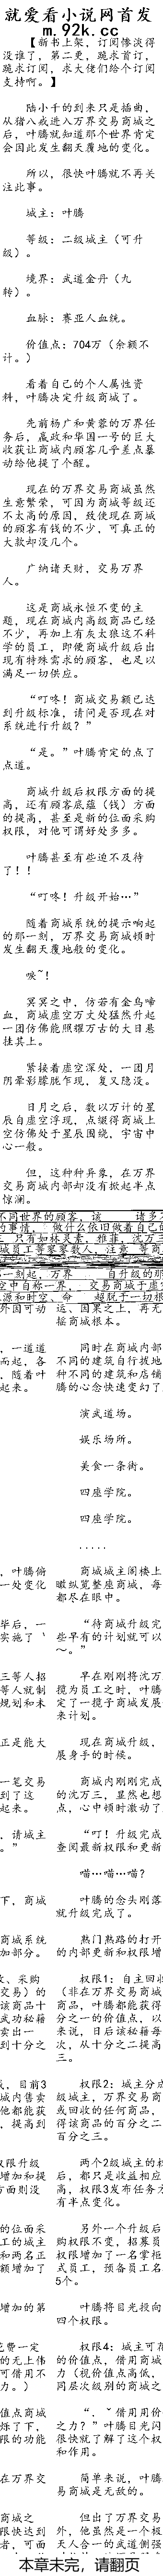 就爱看小说网首发
m.92k.cc
【新书上架，订阅惨淡得
没谁了，第二更，跪求首订，
跪求订阅，求大佬们给个订阅
支持啊。】
陆小千的到来只是插曲，
从猪八戒进入万界交易商城之
后，叶腾就知道那个世界肯定
会因此发生翻天覆地的变化。
所以，很快叶腾就不再关
注此事。
城主：叶腾
等级：二级城主（可升
级）。
境界：武道金丹（九
转）。
血脉：赛亚人血统。
价值点：704万（余额不
计。）
看着自己的个人属性资
料，叶腾决定升级商城了。
先前杨广和黄蓉的万界任
务后，嬴政和华国一号的巨大
收获让商城内顾客几乎差点暴
动给他提了个醒。
现在的万界交易商城虽然
生意繁荣，可因为商城等级还
不太高的原因，致使现在商城
的顾客有钱的不少、可真正的
大款却没几个。
广纳诸天财，交易万界
人。
这是商城永恒不变的主
题，现在商城内高级商品已经
不少，再加上有灰太狼这不科
学的员工，即便商城升级后出
现有特殊需求的顾客，也足以
满足一切供应。
“叮咚！商城交易额已达
到升级标准，请问是否现在对
系统进行升级？”
“是。”叶腾肯定的点了
点道。
商城升级后权限方面的提
高，还有顾客底蕴（钱）方面
的提高，甚至是新的位面采购
权限，对他可谓好处多多。
叶腾甚至有些迫不及待
了！！
“叮咚！升级开始…”
随着商城系统的提示响起
的那一刻，万界交易商城顿时
发生翻天覆地般的变化。
唳~！
冥冥之中，仿若有金乌啼
血，商城虚空万丈处猛然升起
一团仿佛能照耀万古的大日悬
挂其上。
紧接着虚空深处，一团月
阴晕影朦胧乍现，复又隐没。
日月之后，数以万计的星
辰自虚空浮现，点缀得商城上
空仿佛处于星辰围绕，宇宙中
心一般。
但，这种种异象，在万界
交易商城内部却没有掀起半点
惊澜。
外国可动
运、因果之上，再无
摇商城根本。
，一道道
而起，各
，随着叶
起来。
同时在商城内部
不同的建筑自行拔地
种不同的建筑和店铺
腾的心念快速变幻了
演武道场。
娱乐场所。
美食一条街。
四座学院。
四座学院。
.....
，叶腾俯
一处变化
商城城主阁楼上
瞰纵览整座商城，每
都尽在眼中。
毕后，一
实施了
“待商城升级完
些早有的计划就可以
～。”
三等人招
等人就制
规划和未
早在刚刚将沈万
揽为员工之时，叶腾
定了一揽子商城发展
来计划。
正是能大
现在商城升级，
展身手的时候。
一笔交易
到了这
起来。
商城内刚刚完成
的沈万三，显然也想
点，心中顿时激动了
，请城主
。”
“叮！升级完成
查阅最新权限和更新
喵…喵…喵？
下，商城
叶腾的念头刚落
就升级完成了。
商城系统
加部分。
熟门熟路的打开
的内部更新和权限增
权限1：自主回收
（非在万界交易商城
商品，叶腾都能获得
分之一的价值点，以
来说，日后该秘籍每
次，从十分之二提高
三。
，目前3
城内售卖
他都能获
，提高到
权限2：城主分成
级城主，万界交易商
或回收的任何商品，
得该商品的百分之二
百分之三。
权限升级
增加和提
方面则没
两个2级城主的权
后，都只是收益相应
高，权限3发布任务方
有半点变化。
的位面采
工的城主
和两名正
额增加了
另外一个升级后
购权限不变，招募员
权限增加了一名掌柜
式员工，预备员工名
5个。
增加的第
叶腾将目光投向
四个权限。
花费一定
的无上伟
可借用不
力。）
权限4：城主可花
的价值点，借用商城
力（视价值点高低，
同层次级别的商城之
值点商城
烁了下，
限的功能
借用用价
之力？”叶腾目光闪
很快就了解了这个权
和作用。
在万界交
简单来说，叶腾
易商城是无敌的。
商城之
限快达到
者，可面
但出了万界交易
外，他虽然是一个极
天人合一的武道侧强
本章未完，请翻页